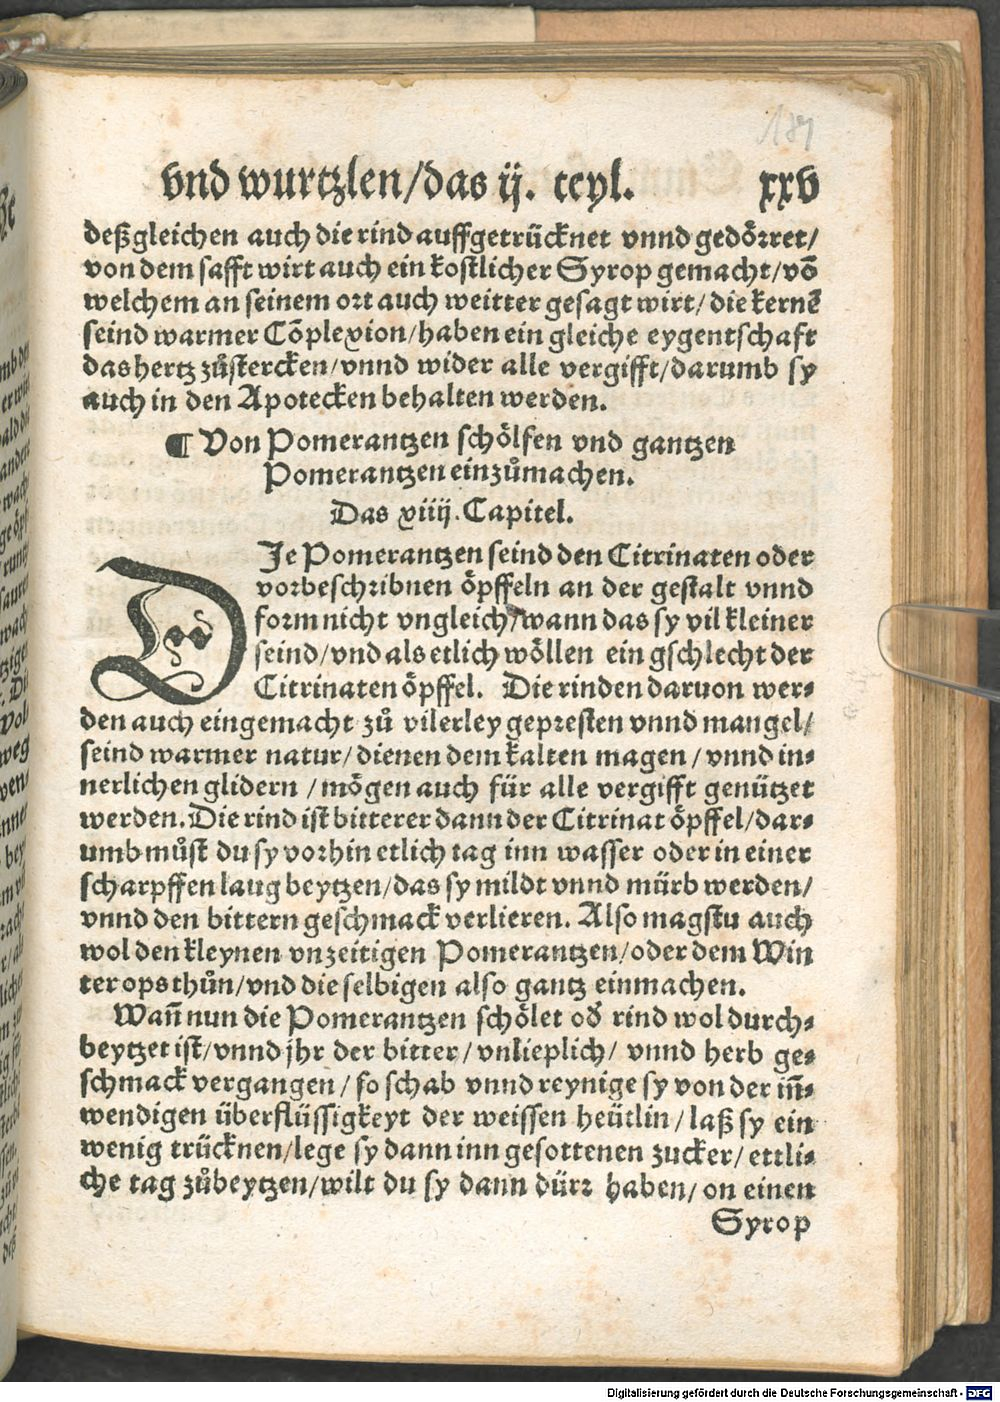 189
vnd wurtzlen/das ij. teyl. xxv
deßgleichen auch die rind auffgetrücknet vnnd gedörret/
von dem safft wirt auch ein kostlicher Syrop gemacht/võ
welchem an seinem ort auch weitter gesagt wirt/die kernẽ
seind warmer Cõplexion/haben ein gleiche eygentschafft
das hertz zůstercken/vnnd wider alle vergifft/darumb sy
auch in den Apotecken behalten werden.
¶ Von Pomerantzen schölfen vnd gantzen
Pomerantzen einzůmachen.
Das xiiij. Capitel.
DJe Pomerantzen seind den Citrinaten oder
vorbeschribnen öpffeln an der gestalt vnnd
form nicht vngleich/wann das sy vil kleiner
seind/vnd als etlich wöllen ein gschlecht der
Citrinaten öpffel. Die rinden daruon wer⸗
den auch eingemacht zů vilerley gepresten vnnd mangel/
seind warmer natur/dienen dem kalten magen/vnnd in⸗
nerlichen glidern/mögen auch für alle vergifft genützet
werden. Die rind ist bitterer dann der Citrinat öpffel/dar⸗
umb můst du sy vorhin etlich tag inn wasser oder in einer
scharpffen laug beytzen/das sy mildt vnnd mürb werden/
vnnd den bittern geschmack verlieren. Also magstu auch
wol den kleynen vnzeitigen Pomerantzen/oder dem Win
ter ops thůn/vnd die selbigen also gantz einmachen.
Wañ nun die Pomerantzen schölet od̕ rind wol durch⸗
beytzet ist/vnnd jhr der bitter/vnlieplich/ vnnd herb ge⸗
schmack vergangen/so schab vnnd reynige sy von der iñ⸗
wendigen überflüssigkeyt der weissen heütlin/laß sy ein
wenig trücknen/lege sy dann inn gesottenen zucker/ettli⸗
che tag zůbeytzen/wilt du sy dann dürr haben/on einen
Syrop
Digitalisierung gefördert durch die Deutsche Forschungsgemeinschaft - DFG